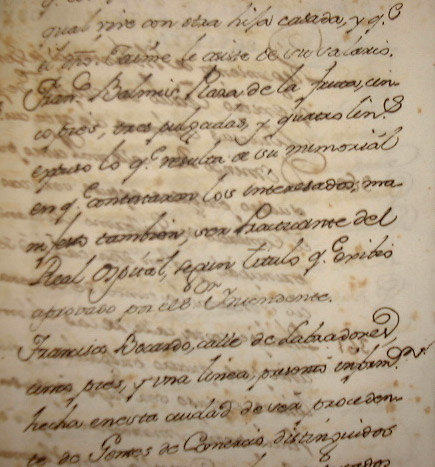 qual vive con otra hija casada, y q.e
il año Jaime le asiste de su salario.
Fran.co Balmis Plaza de la fruta, cin-
co pies, tres pulgadas, y quatro lin.s
expuso lo q.e resulta de su memorial
en q.e contataron los interesados, ma-
nifesto tambien, ser Practicante del
Real Ospital, segun titulo q.e exibio
aprovado por el S.or Yntendente.
Francisco Bocardo, calle de Labradores
cinco pies, y una linea, presentó inform.on
hecha en esta ciudad de ser proceden-
te de Gentes de Comercio distinguidos